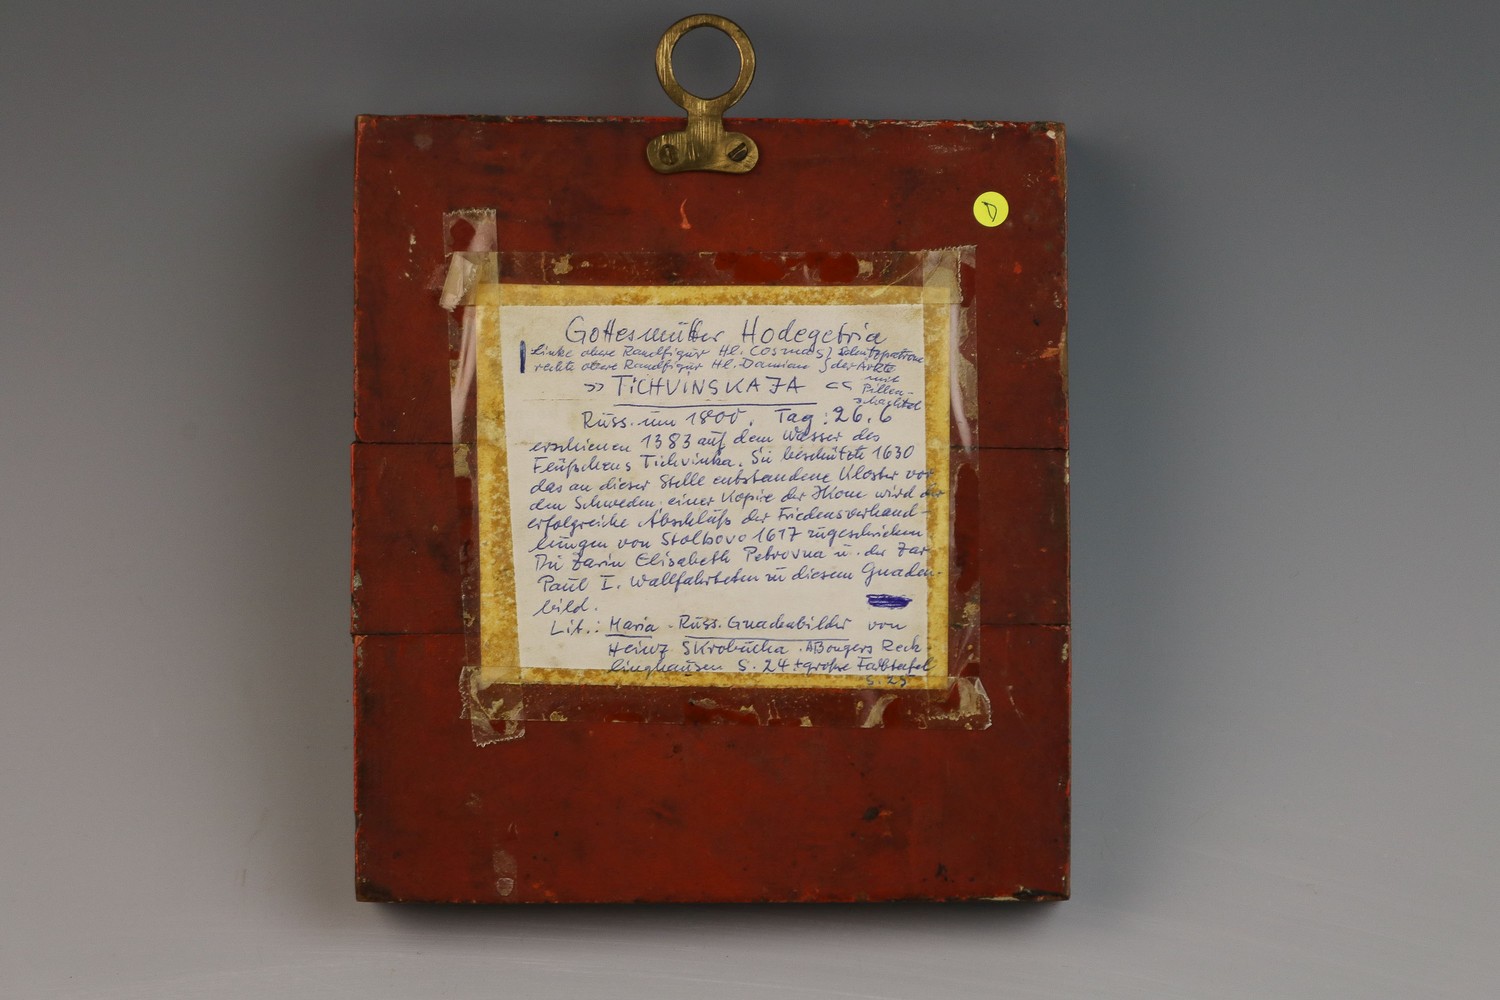 D
Gottesmutter Hodegetria
Linke obere Randfigur Hl. Cosmas } Schutzpatrone
rechte obere Randfigur Hl. Damian } der Ärzte
mit
Pillen-
schachtel
>> TICHVINSKAJA <<
Russ. um 1800. Tag: 26.6
erschienen 1383 auf dem Wasser des
Flüßchens Tichvinka. Sie beschützte 1630
das an dieser Stelle entstandene Kloster vor
den Schweden. einer Kopie der Ikone wird der
erfolgreiche Abschluß der Friedensverhand-
lungen von Stolbovo 1617 zugeschrieben
Die Zarin Elisabeth Petrovna u. der Zar
Paul I. wallfahrteten zu diesem Gnaden-
bild.
Lit.: Maria - Russ. Gnadenbilder von
Heinz Skrobucha. A Bongers Reck-
linghausen S. 24 + große Farbtafel
S. 25